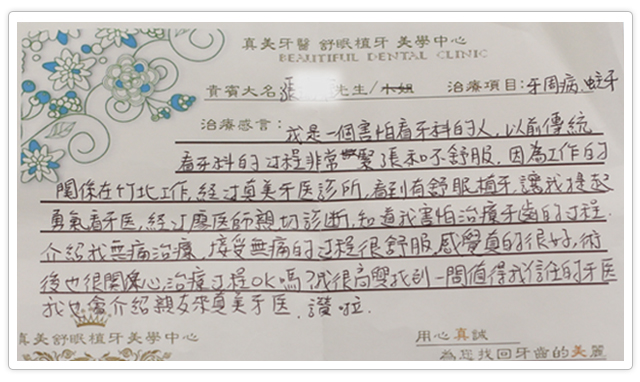 真美牙醫 舒眠植牙 美學中心
BEAUTIFUL DENTAL CLINIC
貴賓大名張 先生/小姐 治療項目:牙周病、蛀牙
治療感言: 我是一個害怕看牙科的人,以前傳統
看牙科的過程非常緊張和不舒服,因為工作的
關係在竹北工作,經過真美牙醫診所,看到有舒眠植牙,讓我提起
勇氣看牙醫,經過廖医師親切診断,知道我害怕治療牙齒的過程,
介紹我無痛治療,接受無痛的過程很舒服,感覺真的很好,術
後也很關係心治療過程OK嗎?我很高興找到一間值得我信任的牙医
我也會介紹親友來真美牙医,讚啦.
真美舒眠植牙美學中心
用心真誠
為您找回牙齒的美麗